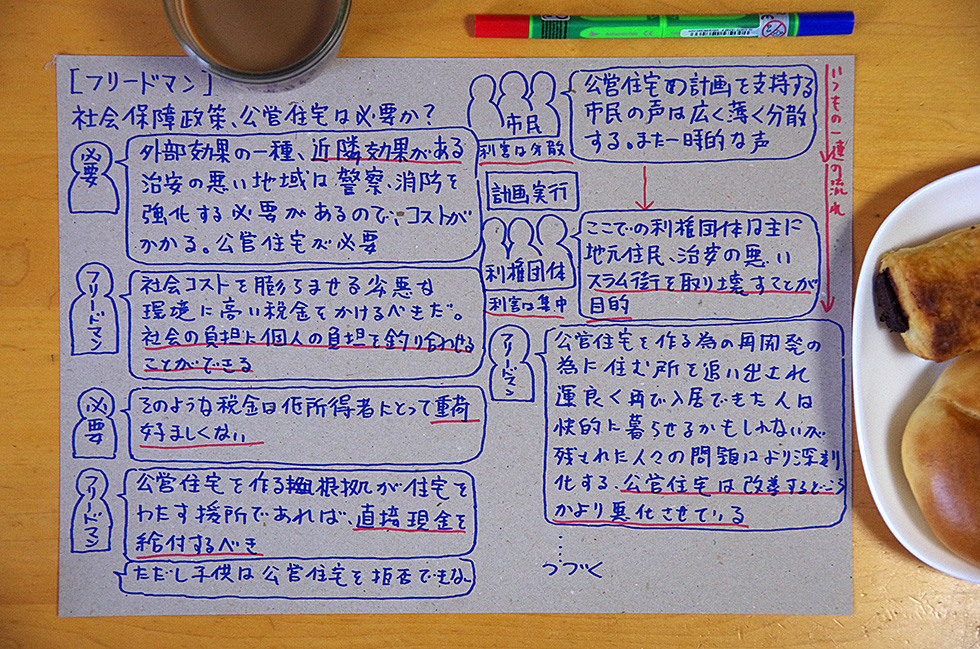 [フリードマン]
社会保障政策、公営住宅は必要か?
必要
外部効果の一種、近隣効果がある
治安の悪い地域は警察、消防を
強化する必要があるので、コストが
かかる。公営住宅が必要
フリードマン
社会コストを膨らませる劣悪な
環境に高い税金をかけるべきだ。
社会の負担に個人の負担を釣り合わせる
ことができる
必要
そのような税金は低所得者にとって重荷
好ましくない
フリードマン
公営住宅を作る根拠が住宅を
わたす援所であれば、直接現金を
給付するべき
ただし子供は公営住宅を拒否できな
市民
利害は分散
公営住宅の計画を支持する
市民の声は広く薄く分散
する。また一時的な声
計画実行
利権団体
利害は集中
ここでの利権団体は主に
地元住民、治安の悪い
スラム街を取り壊すことが
目的
いつもの一連の流れ
フリードマン
公営住宅を作る為の再開発の
為に住む所を追い出され
運良く再で入居できた人は
快的に暮らせるかもしれないが
残された人々の問題はより深刻
化する。公営住宅は改善するどころ
かより悪化させている
⋮
つづく